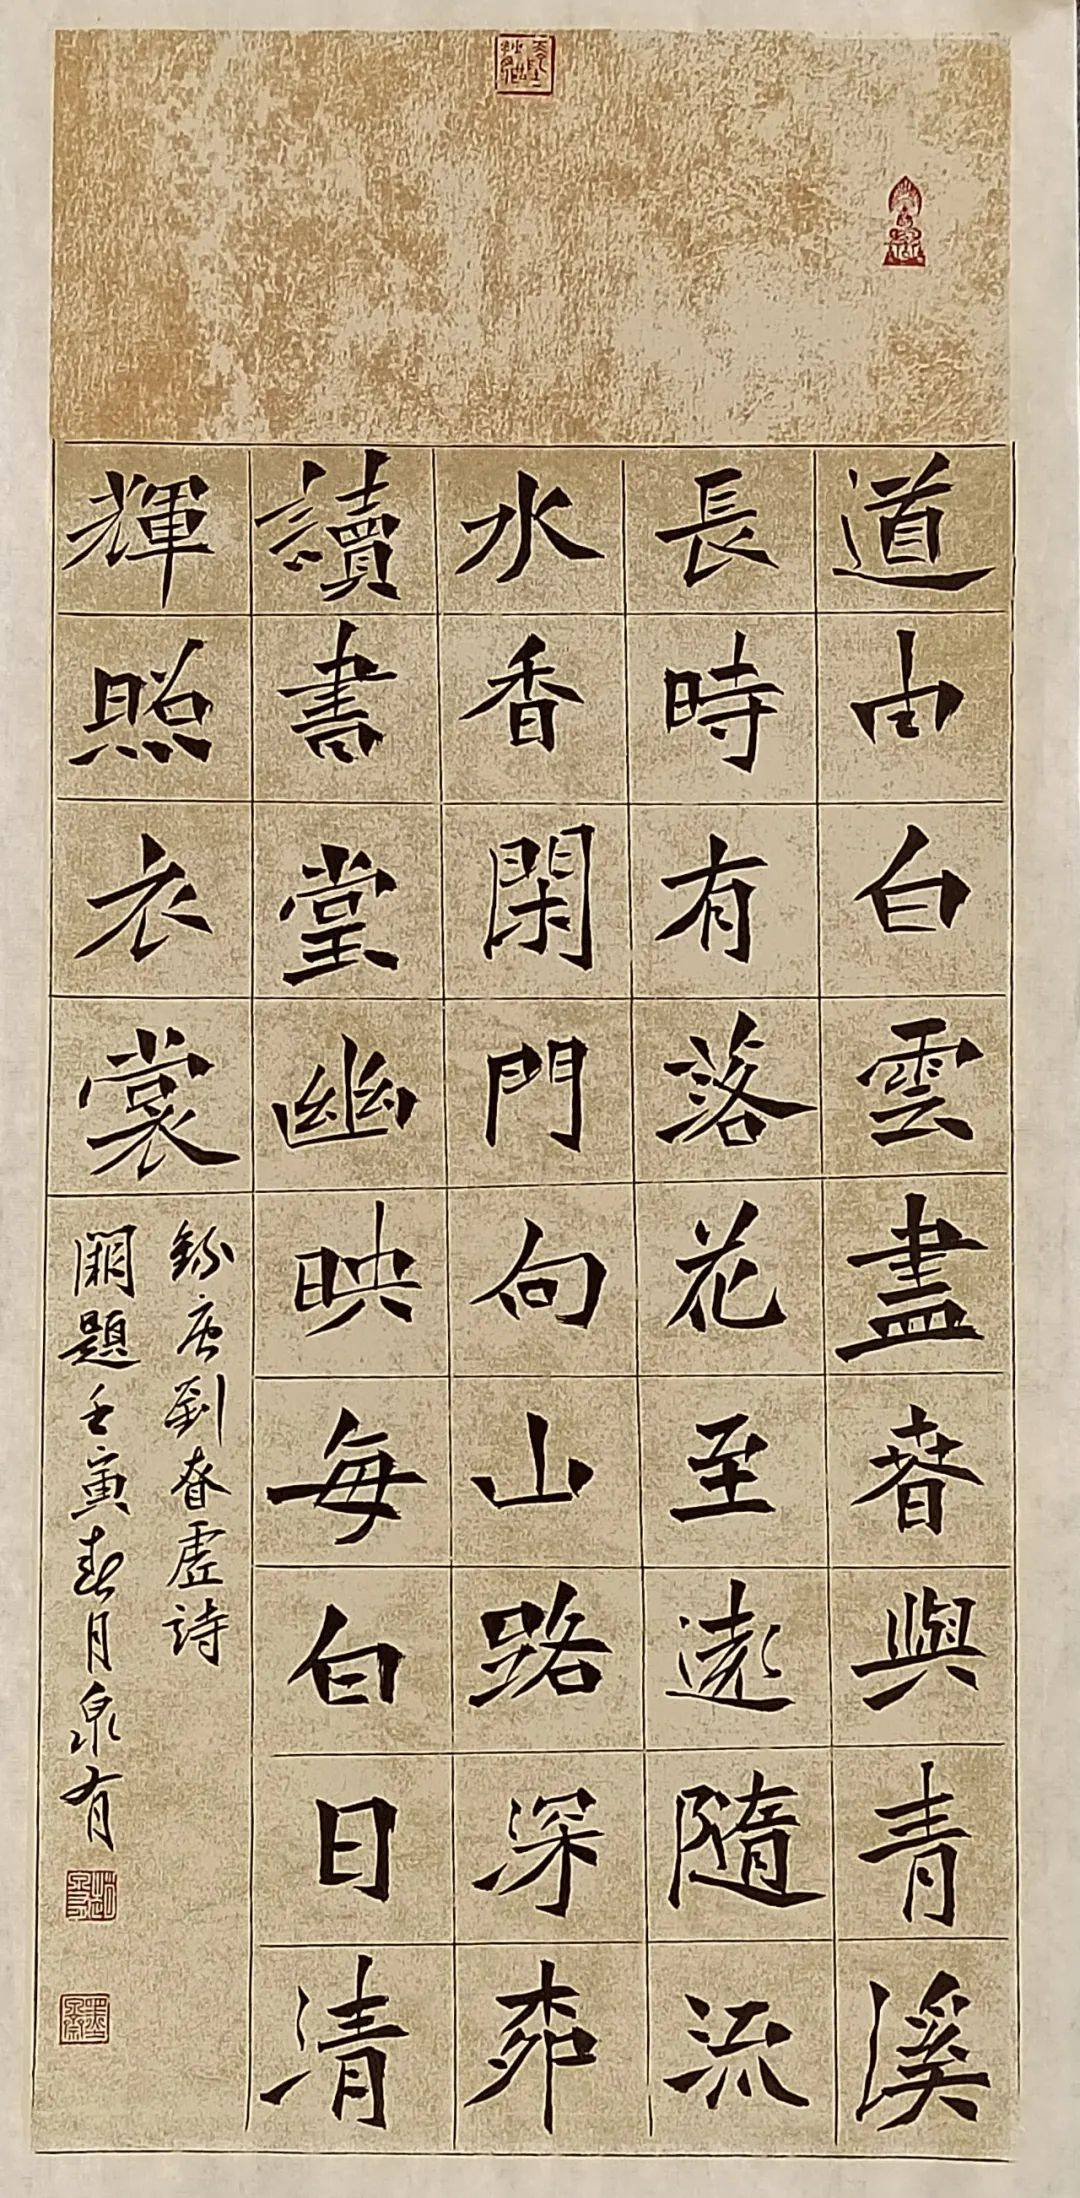 道由白雲盡春與青溪
長時有落花至遠隨流
水香閑門向山路深柳
讀書堂幽映每白日清
輝照衣裳
錄唐劉昚虛詩
闕題壬寅春月泉有